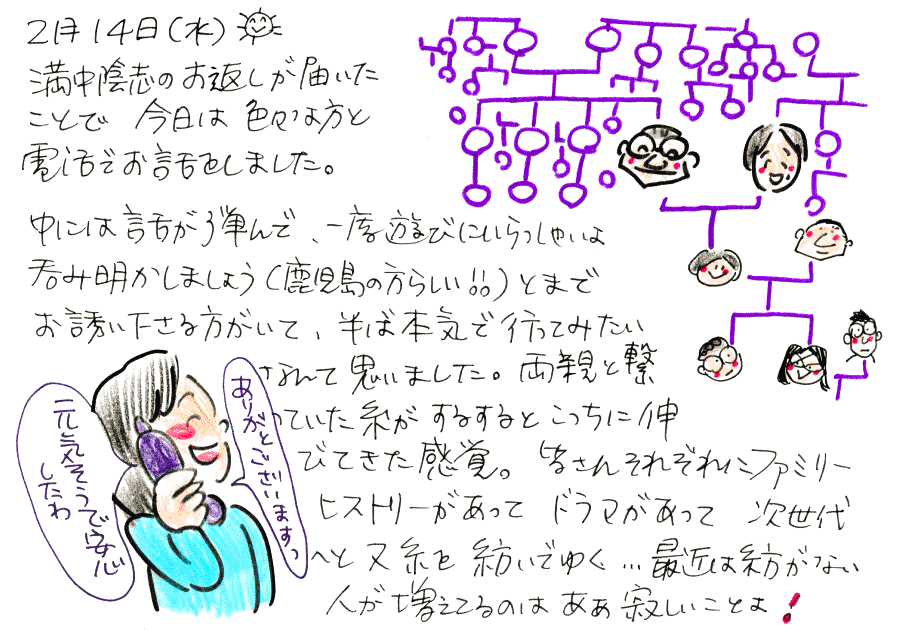 2月14日(水)
満中陰志のお返しが届いた
ことで 今日は 色々な方と
電話でお話をしました。
中には話が弾んで、一度遊びにいらっしゃいよ
呑み明かしましょう(鹿児島の方らしい!!)とまで
お誘い下さる方がいて、半ば本気で行ってみたい
なんて思いました。両親と繋
っていた糸が するすると こっちに伸
びてきた感覚。 皆さんそれぞれにファミリー
ヒストリーがあって ドラマがあって 次世代
へと 又 糸を 紡いでゆく…最近は紡がない
人が増えてるのは ああ 寂しいことよ!
ありがとうございますっ
元気そうで安心
したわ